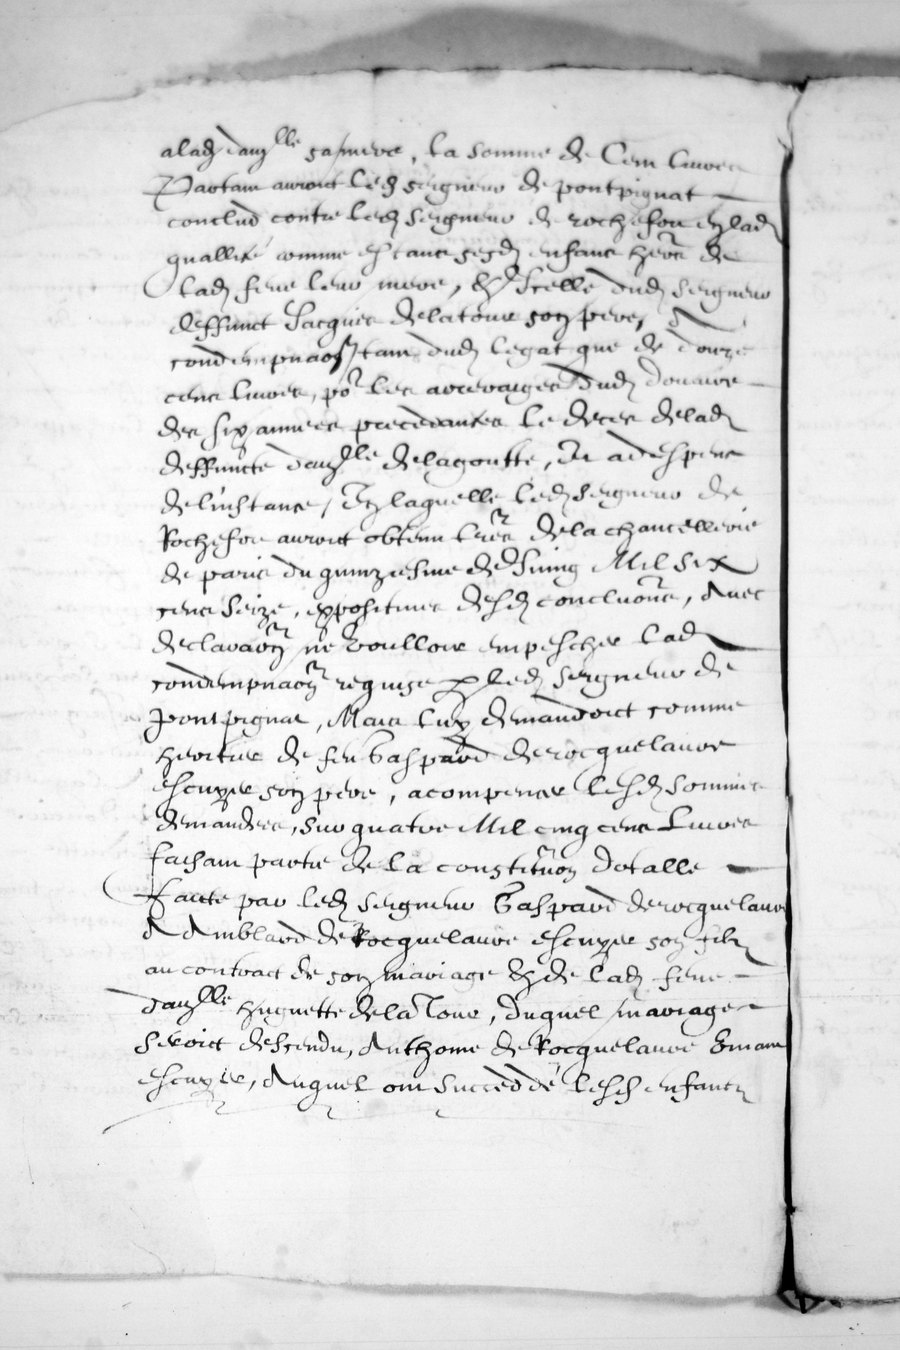 a lad damlle sa mere, la somme de Cent livres
Partant auroict led seigneur de pontpignat
conclud contre led seigneur de rochefort en lad
quallité comme estant sesd enfans hers de
lad feue leur mere, & Icelle dud seigneur
deffunct Jacques de la tour son pere, A
condempnaon tant dud legat que de douze
cens livres, por les arreraiges dud douaire
des six annees precedantes le deces de lad
deffuncte damlle de lagoutte, Et ad espens
de l'instance, En laquelle led seigneur de
Rochefort auroict obtenu lres de la chancellerie
de paris du quinziesme de Juing Mil six
cens seize, expositives desd concluons, Avec
declaraon ne voulloir empescher lad
condempnaon requise p led seigneur de
pontpignat, Mais luy demandoict comme
heritier de feu Gaspard de rocquelaure
escuyer son pere, a compenser lesd sommes
demandees, sur quatre Mil cinq cens Livres
faisant partie de la constituon dotalle
faicte par led seigneur Gaspard de rocquelaure
A Amblard de Rocquelaure escuyer son filz
au contract de son mariage & de lad feue
damlle huguette de la Tour, duquel mariage
seroict descendu, Anthoine de Rocquelaure
escuyer, Auquel ont succeddé lesd enfans